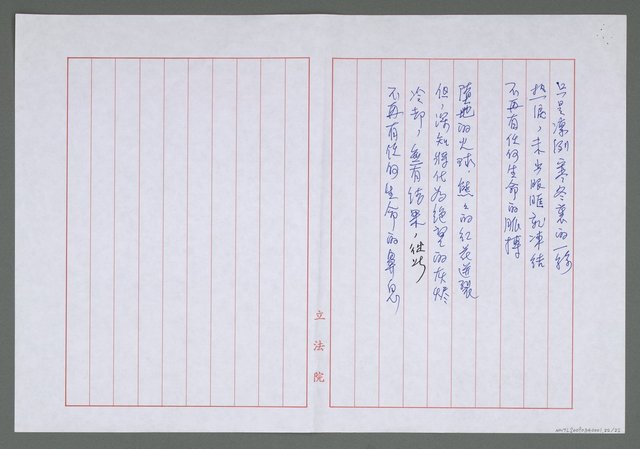 只是凜冽寒冬裏的一絲
熱淚，未出眼眶就凍結
不再有任何生命的脈搏
墮地的火球，熊熊的紅花迸裂
但，深知將化為絕望的灰燼
冷却，無有結果，從此
不再有任何生命的鼻息
立法院